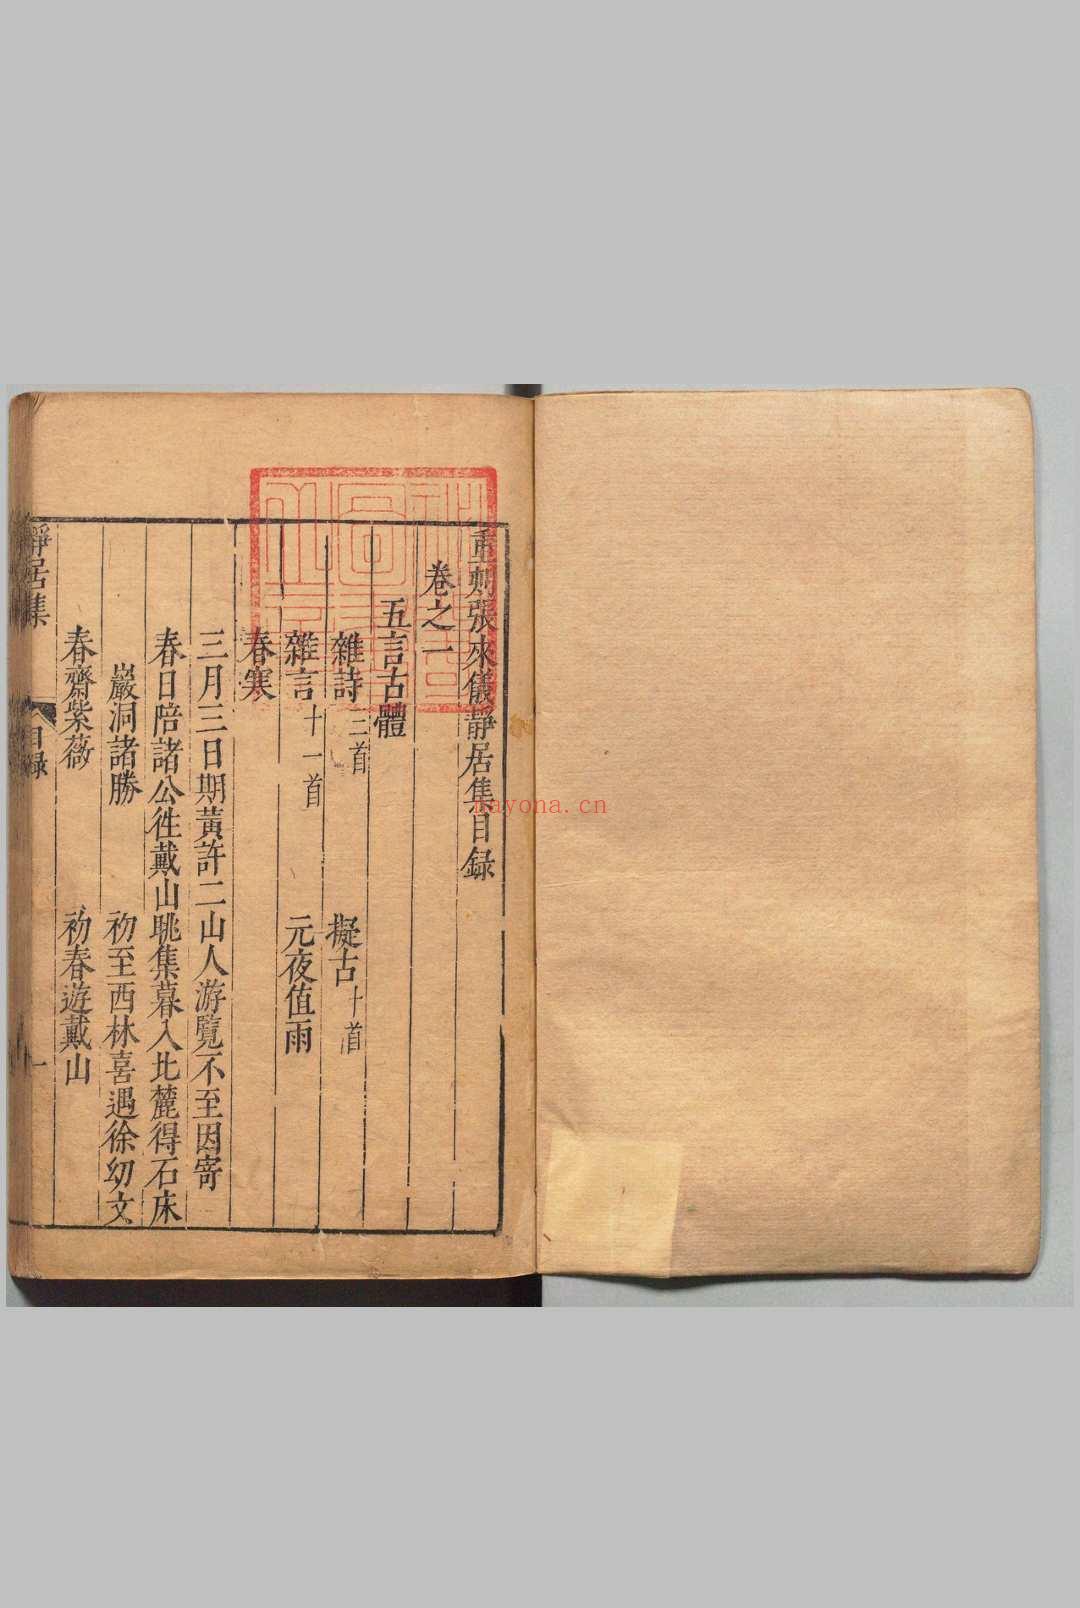 重刻張來儀靜居集目録
卷之一
五言古體
雜詩三首 擬古十首
雜言十一首 元夜值雨
春寒
三月三日期黃許二山人游覽不至因寄
春日陪諸公徃戴山眺集暮入北麓得石床
巖洞諸勝 初至西林喜遇徐幼文
春齋紫薇 初春遊戴山
靜居集 目録 一
nayona.cn